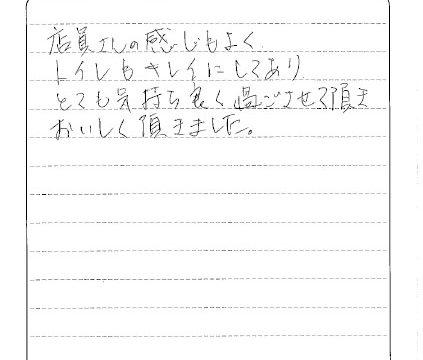 店員さんの感じもよく
トイレもキレイにしてあり
とても気持ち良く過ごさせて頂き
おいしく頂きました。